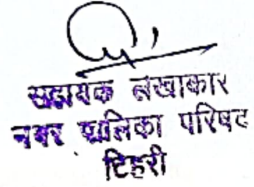 सहायक लेखाकार
नगर पालिका परिषद
टिहरी